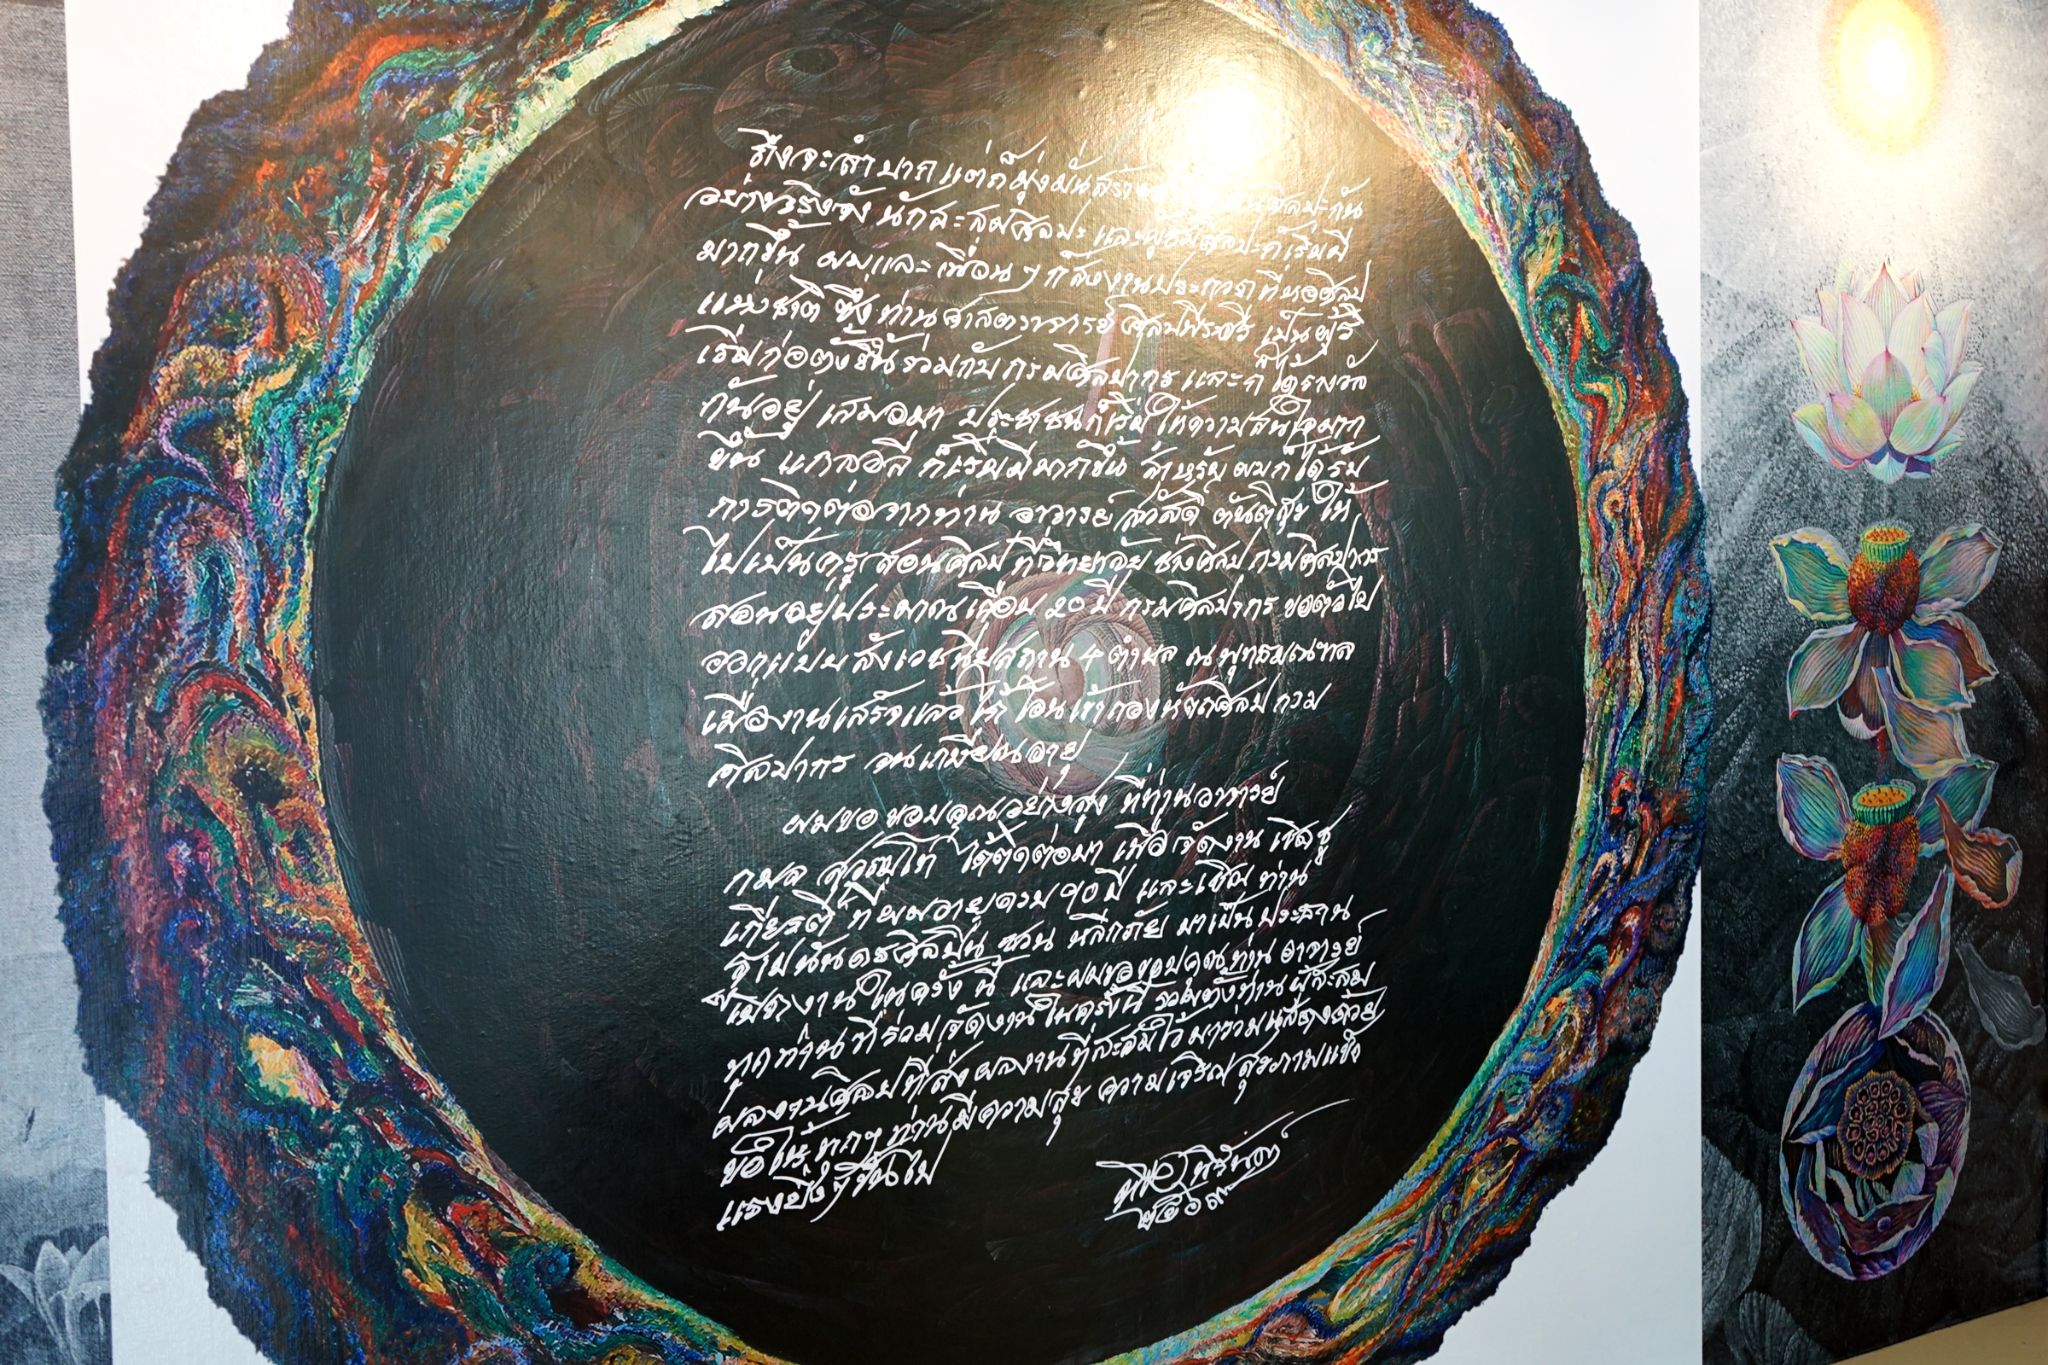 ถึงจะลำบาก แต่ก็มุ่งมั่นสร้าง ศิลปะกัน
อย่างจริงจัง นักสะสมศิลปะ และผู้ ศิลปะก็เริ่มมี
มากขึ้น ผมและเพื่อนๆ ก็ส่งงานประกวดที่หอศิลป
แห่งชาติ ซึ่งท่านศาสตราจารย์ศิลป์ พีระศรี เป็นผู้ริ
เริ่มก่อตั้งขึ้นร่วมกับกรมศิลปากร และก็ได้รางวัล
กันอยู่เสมอมา ประชาชนก็เริ่มให้ความสนใจมาก
ขึ้น แกลอลี่ ก็เริ่มมีมากขึ้น สำหรับผมก็ได้รับ
การติดต่อจากท่าน อาจารย์สวัสดิ์ ตันติสุข ให้
ไปเป็นครูสอนศิลป ที่วิทยาลัยช่างศิลป กรมศิลปากร
สอนอยู่ประมาณเกือบ 20 ปี กรมศิลปากร ขอตัวไป
ออกแบบสังเวชนียสถาน 4 ตำบล ณ พุทธมณฑล
เมื่องานเสร็จแล้ว ได้โอนเข้ากองหัตถศิลป กรม
ศิลปากร จนเกษียณอายุ
ผมขอขอบคุณอย่างสูง ที่ท่านอาจารย์
กมล ได้ติดต่อมา เพื่อจัดงาน เชิดชู
เกียรติ ที่ผมอายุครบ ๘๐ ปี และเชิญ ท่าน
ศิลปิน ชวน หลีกภัย มาเป็นประธาน
เปิดงานในครั้งนี้ และผมขอขอบคุณท่าน อาจารย์
ทุกท่านที่ร่วมจัดงานในครั้งนี้ รวมทั้งท่านผู้สะสม
ผลงานศิลปที่ส่งผลงานที่สะสมไว้มาร่วมแสดงด้วย
ขอให้ทุกๆ ท่านมีความสุข ความเจริญ สุขภาพแข็ง
แรงยิ่งๆ ขึ้นไป